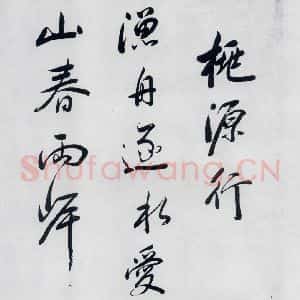 桃源行
漁舟逐水愛
山春兩岸
Shufawang.CN